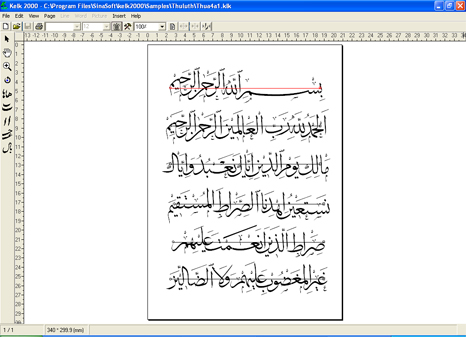 Kelk 2000 - C:\Program Files\SinaSoft\kelk2000\Samples\Thuluth\Thua4a1.klk
File Edit View Page Line Word Picture Insert Help
12 100%
بسم الله الرحمن الرحيم
الحمد لله رب العالمين الرحمن الرحيم
مالك يوم الدين اياك نعبد واياك
نستعين اهدنا الصراط المستقيم
صراط الذين انعمت عليهم
غير المغضوب عليهم ولا الضالين
1 / 1 340 * 299.9 (mm)